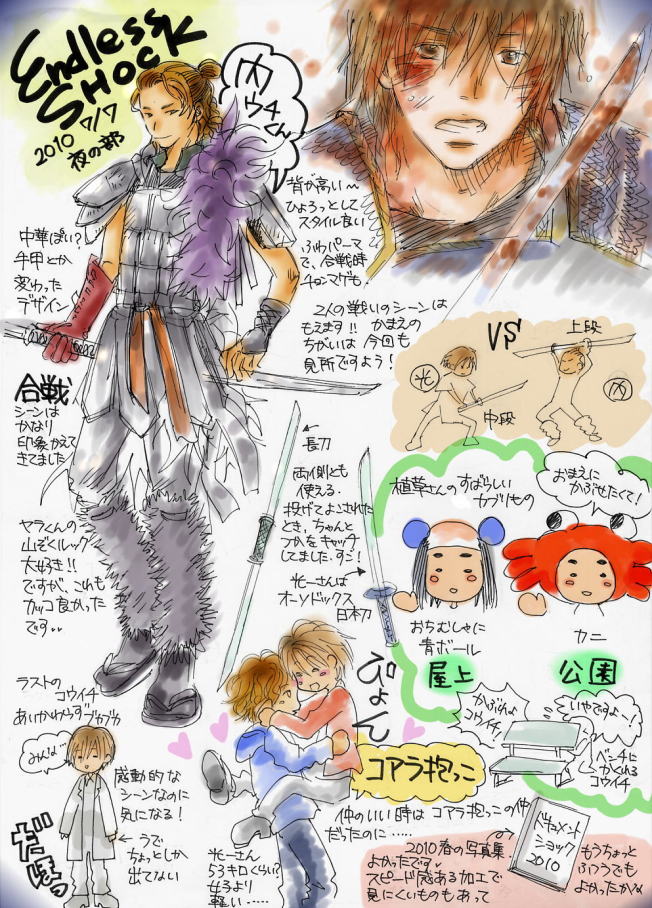 Endless
SHOCK
7/7
2010
夜の部
内
ウチくん
背が高い〜
ひょろっとして
スタイル良い
ふわパーマ
で、合戦時
チョンマゲも.
中華ぽい?
手甲とか
変わった
デザイン
2人の戦いのシーンは
もえます!! かまえの
ちがいは 今回も
見所ですよう!
VS
上段
光
内
中段
合戦
シーンは
かなり
印象かえて
きてました
←長刀
両側とも
使える.
投げてよこされた
とき、ちゃんと
つかをキャッチ
してました.すご!
光一さんは
オーソドックス
日本刀
植草さんの すばらしい
カブリもの
おまえに
かぶせたくて!
おちむしゃに
青ボール
カニ
ヤラくんの
山ぞくルック
大好き!!
ですが、これも
カッコ良かった
です..
屋上
公園
かぶれよ
コウイチ!
いやですよー!
ベンチに
かくれる
コウイチ
ぴょん
コアラ抱っこ
仲のいい時は コアラ抱っこの仲
だったのに……
ラストの
コウイチ
あいかわらずブカブカ
みんな…
感動的な
シーンなのに
気になる!
←うで
ちょっとしか
出てない
だぼっ
光一さん
53キロくらい?
女子より
軽い……
ドキュメント
ショック
2010
2010春の写真集
よかったです.
スピード感ある加工で
見にくいものもあって
もうちょっと
ふつうでも
よかったかな